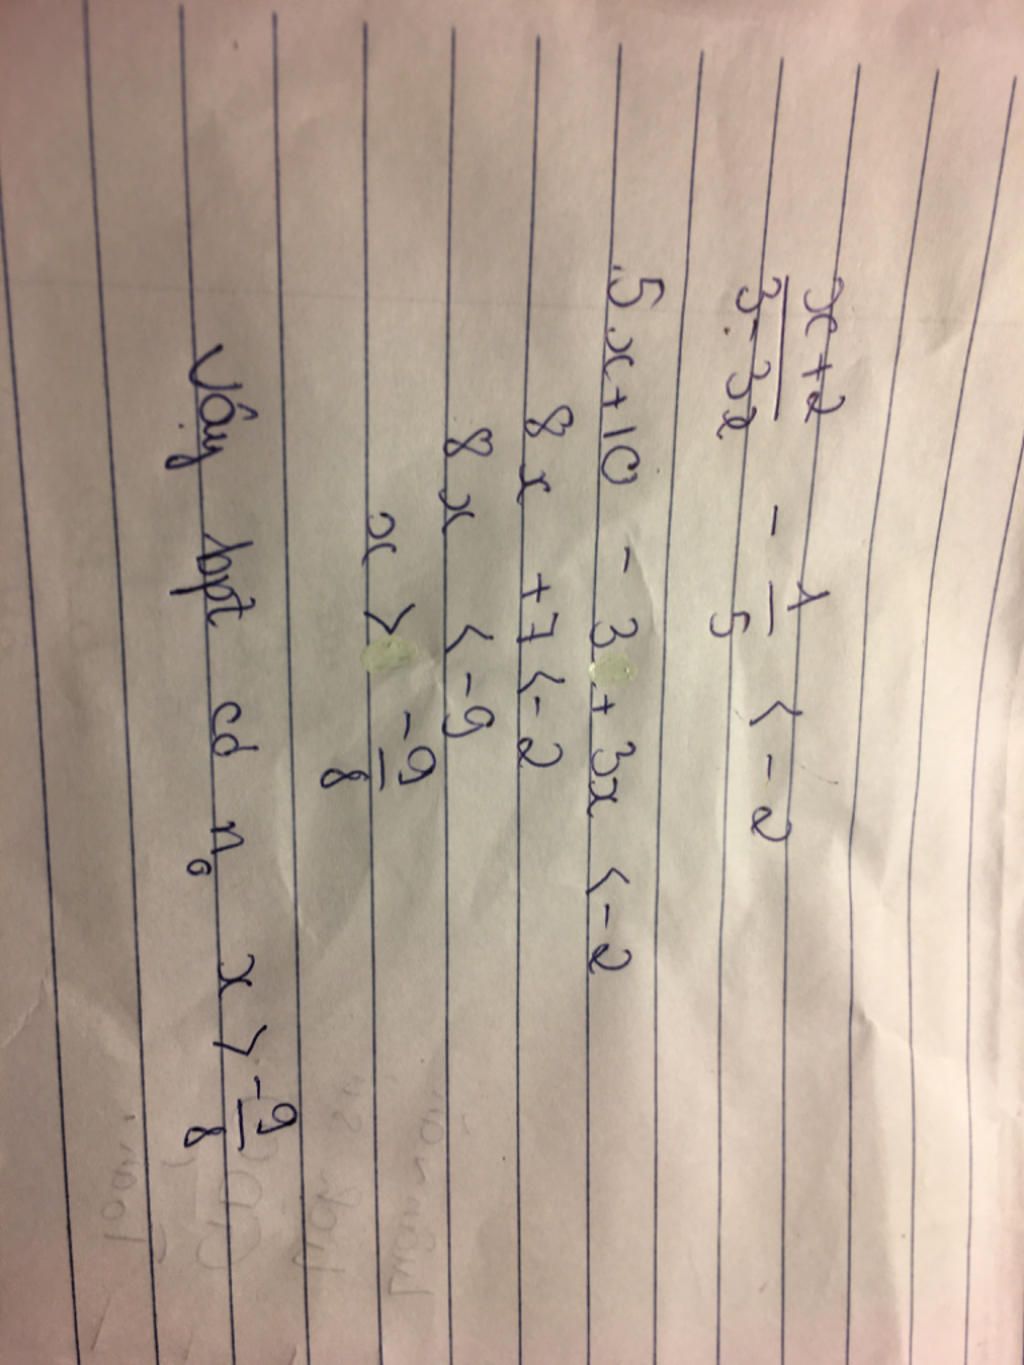 x+2/3-3x - 1/5 < -2
5x+10 - 3 + 3x < -2
8x +7 < -2
8x < -9
x > -9/8
Vậy bpt có n₀ x > -9/8